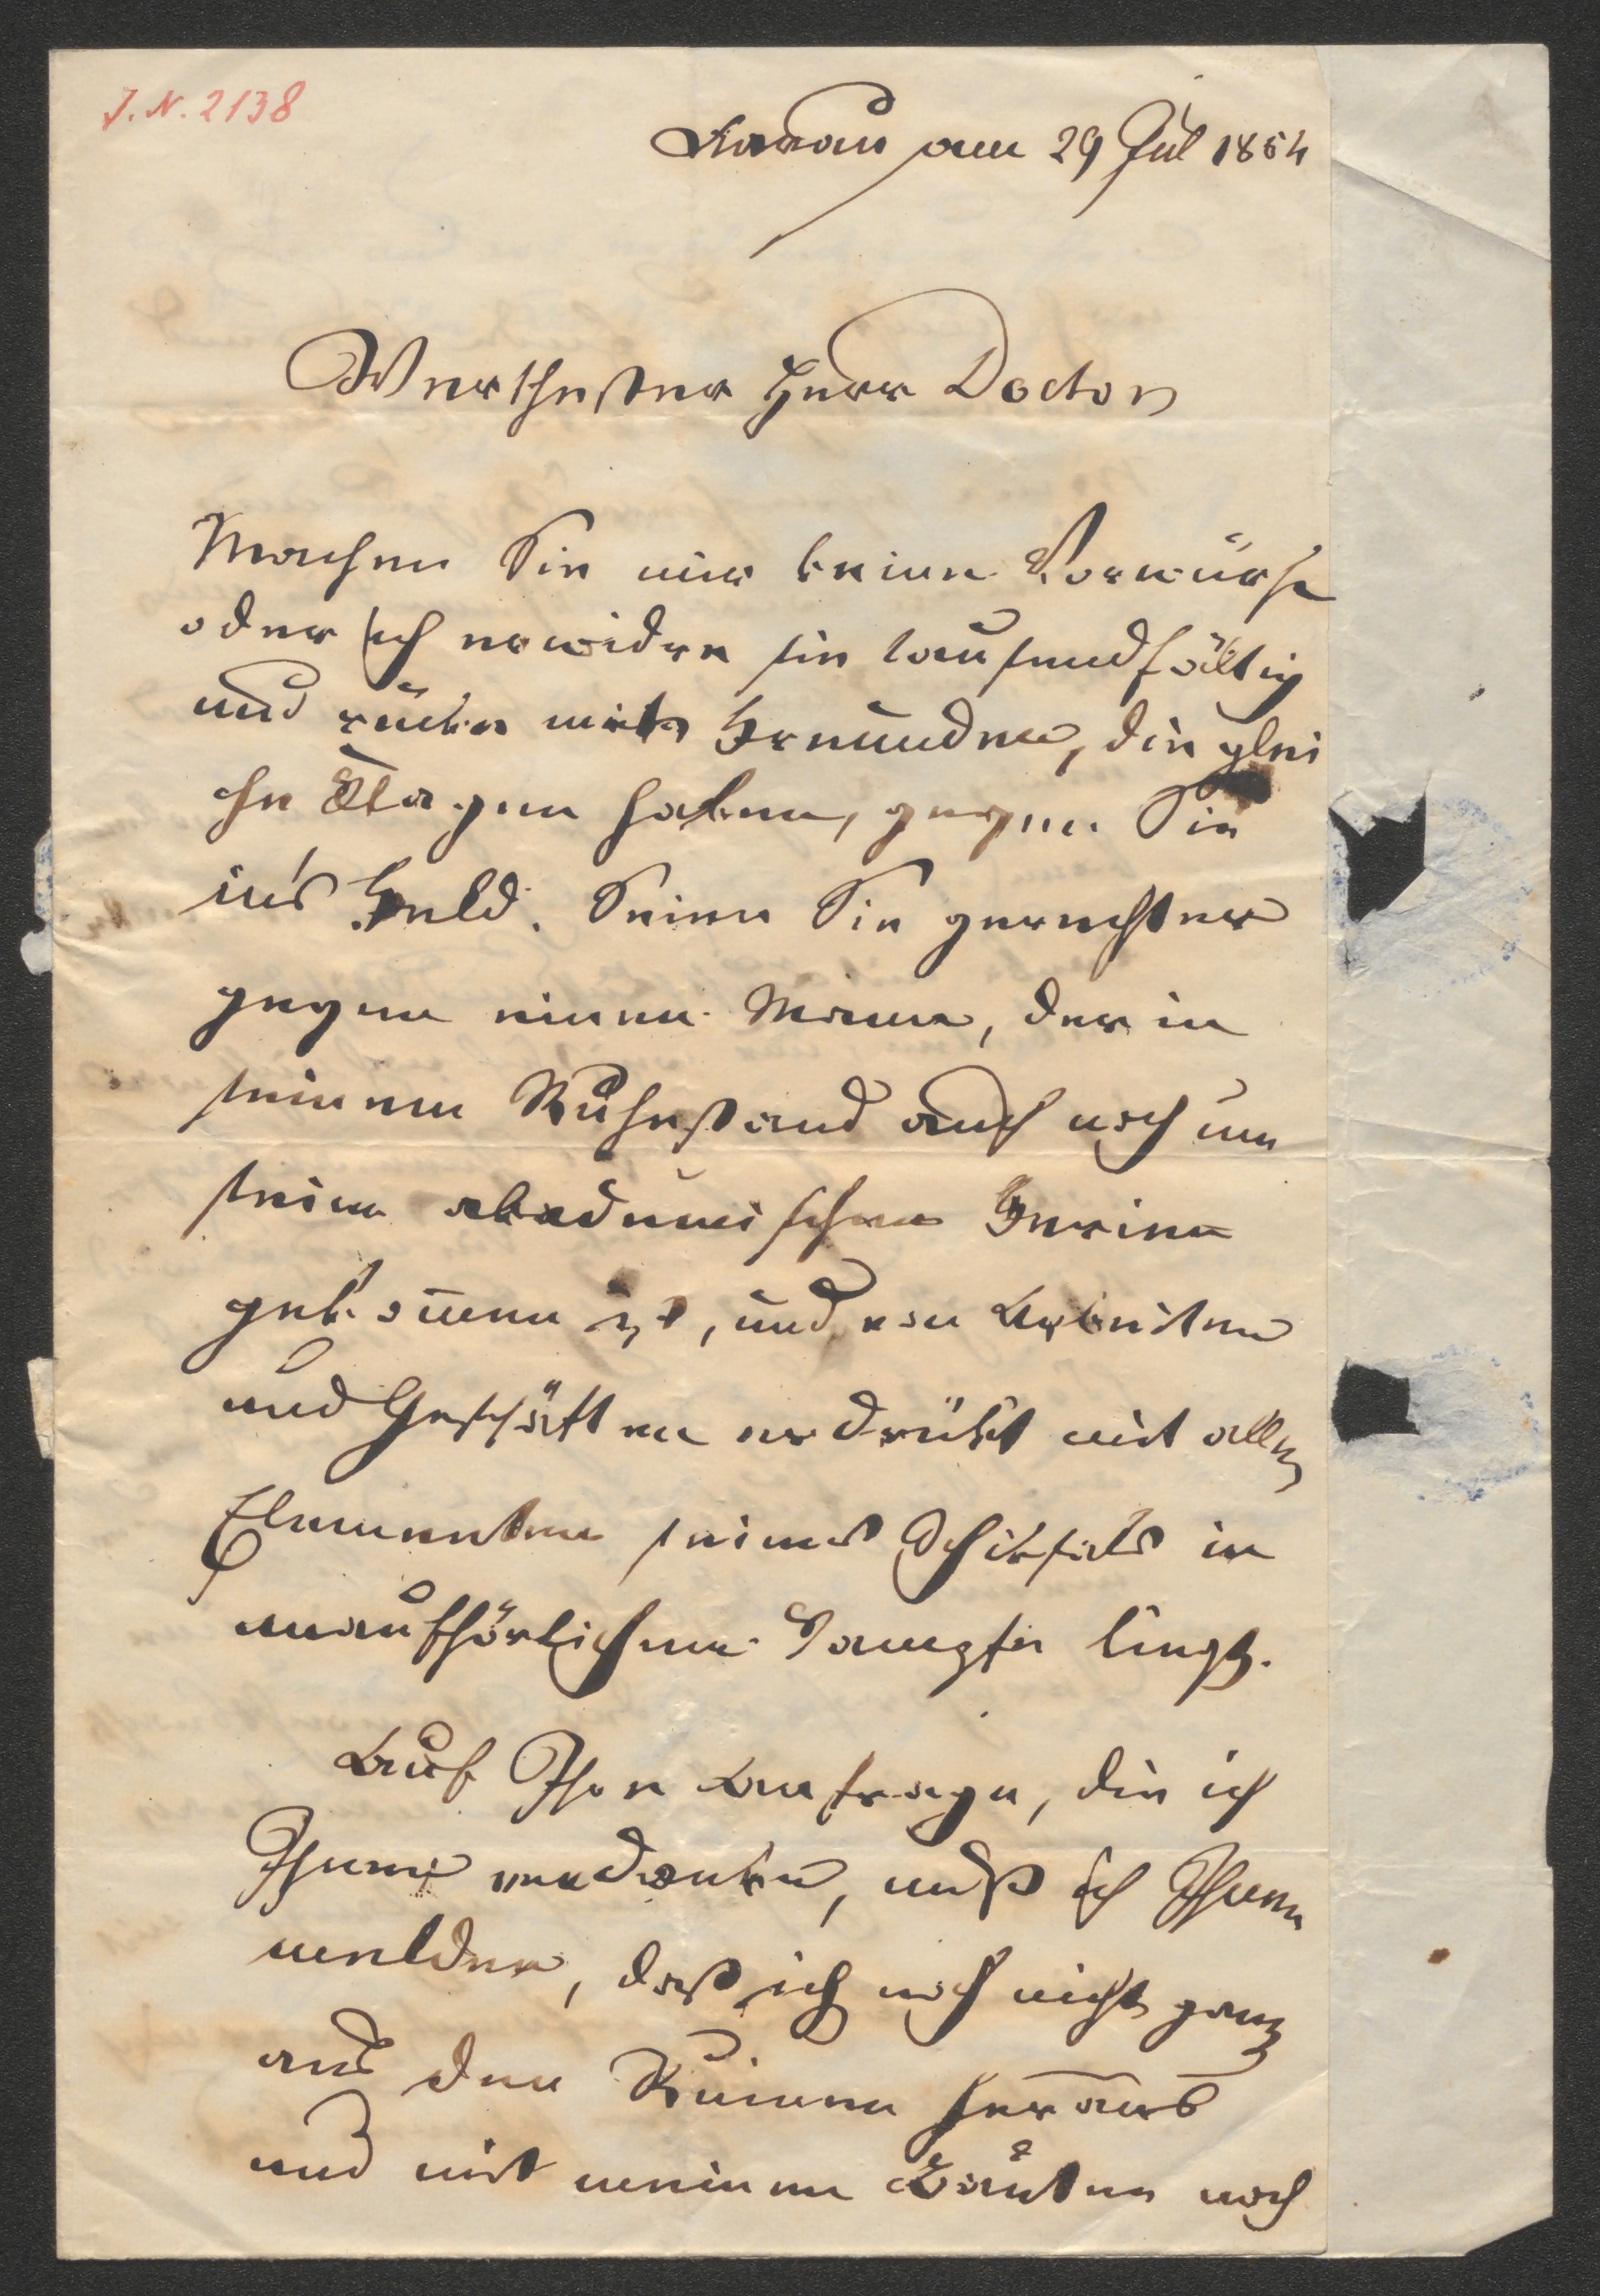 J. N. 2138
am 29 Jul 1854
Werthester Herr Doctor
Machen Sie mir keine Vorwürfe
oder ich erwidre sie tausendfältig
und rücke mit Freunden, die glei
che Klagen haben, gegen Sie
in's Feld. Seien Sie gerechter
gegen einen Mann, der in
seinem Ruhestand auch noch um
seine akademischen Ferien
gekommen ist, und von Arbeiten
und Geschäften erdrückt mit allen
Elementen seines Schiksals in
unaufhörlichem Kampfe liegt.
Auf Ihre Anfrage, die ich
Ihnen verdanke, muß ich Ihnen
melden, daß ich noch nicht ganz
aus den Ruinen heraus
und mit meinen Bauten noch